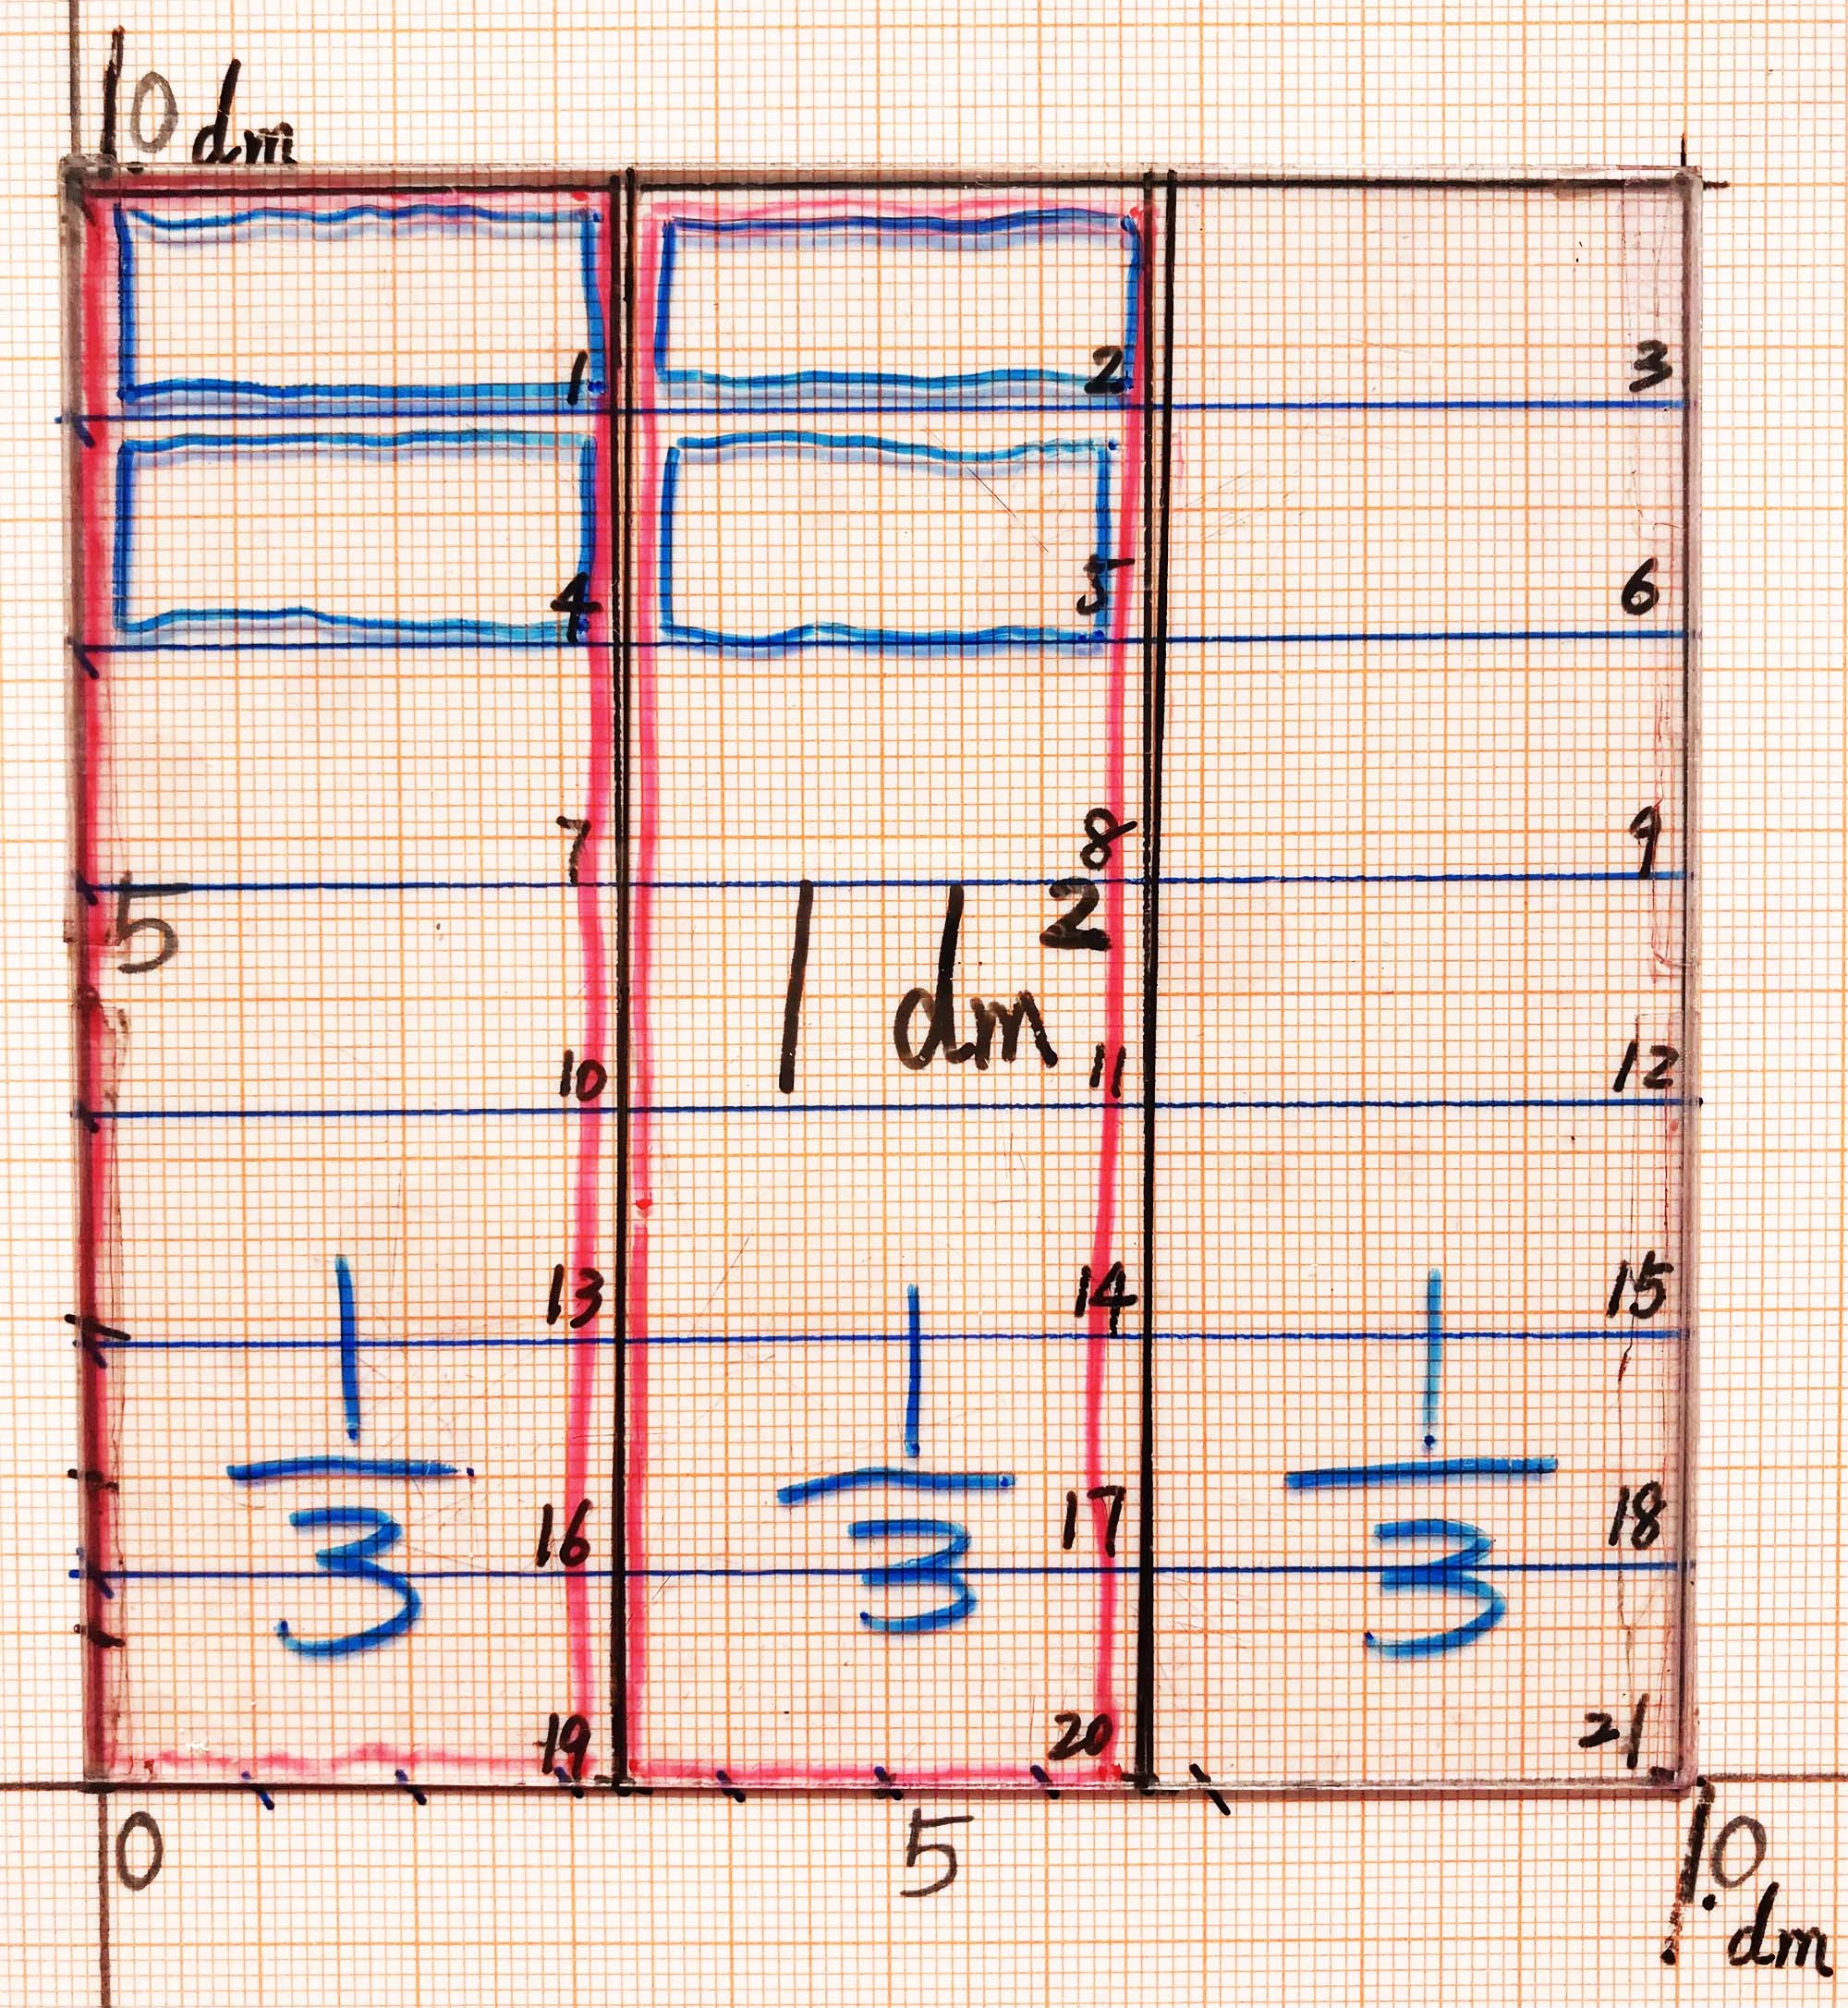 1.0 dm
1 2 3
4 5 6
7 8 9
5 1 dm²
10 11 12
13 14 15
1/3 1/3 1/3
16 17 18
19 20 21
0 5 1.0
dm